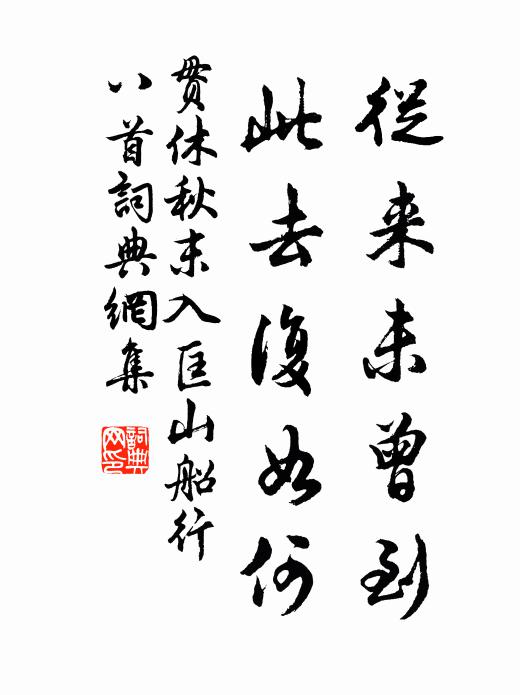 從来未曾到
此去復如何
貫休秋末入匡山船行
八首詞典網集
詞典网印